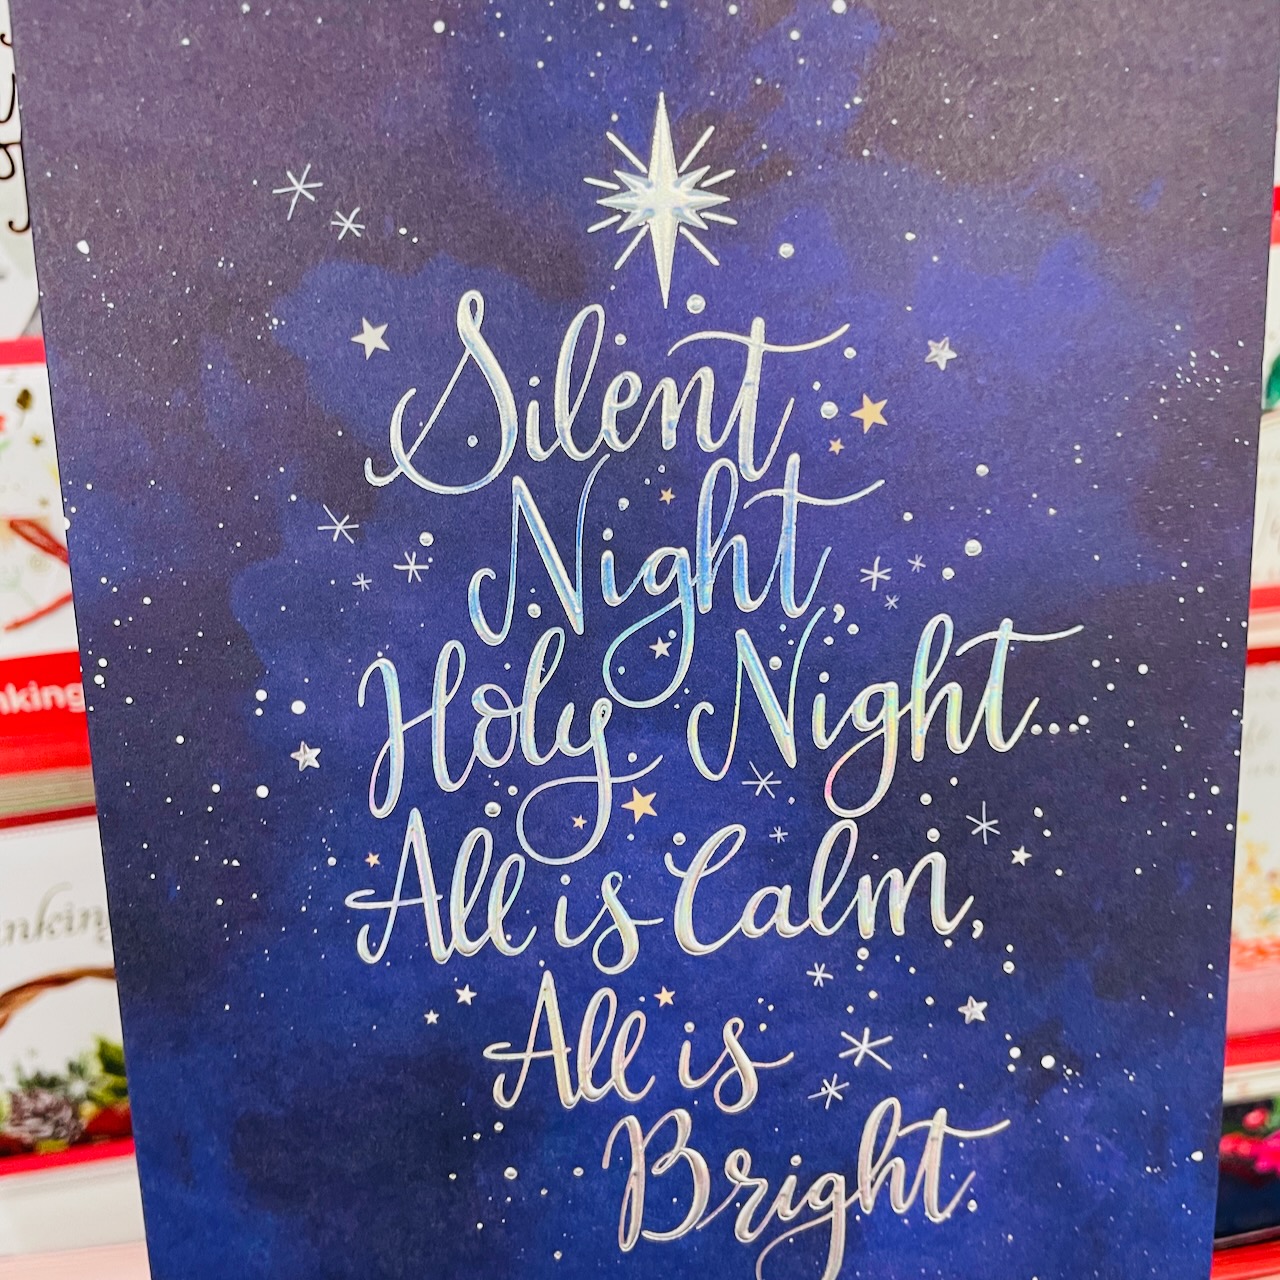 Silent
Night,
Holy Night...
All is Calm,
All is
Bright
nking
inking